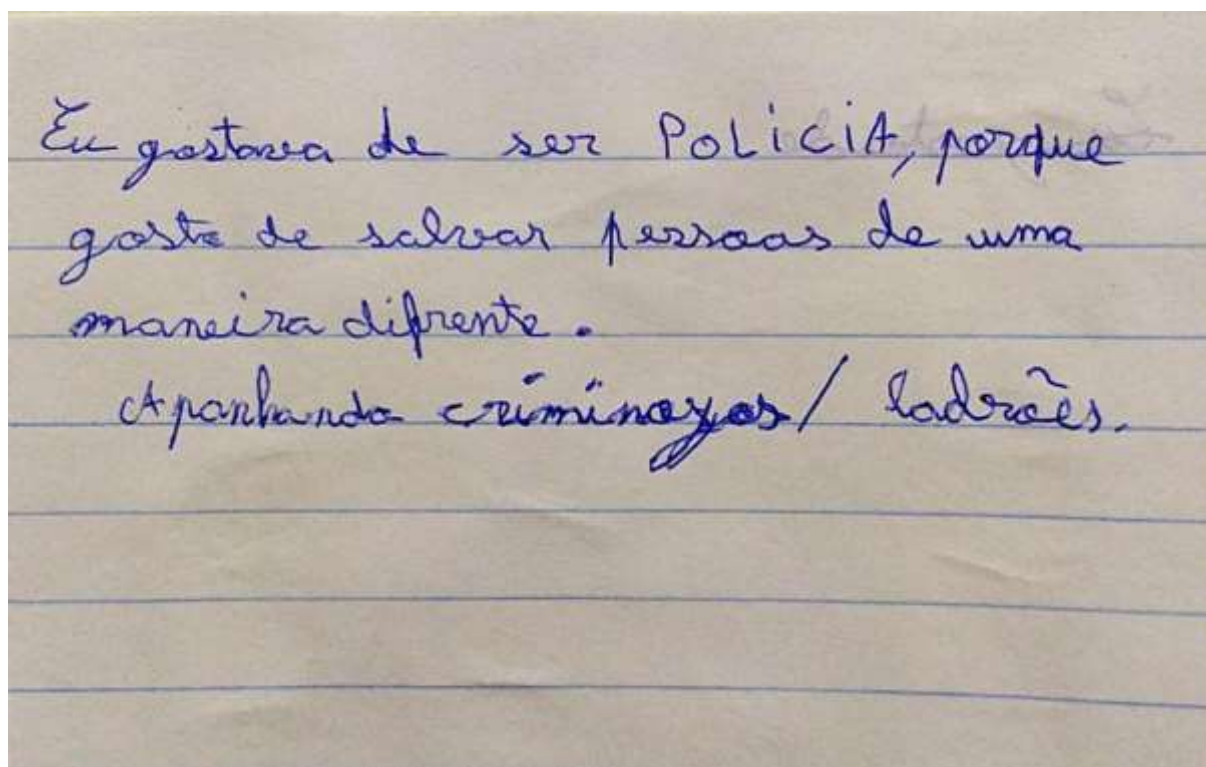 Eu gostava de ser POLICIA, porque
gosto de salvar pessoas de uma
maneira difrente.
Apanhando criminozos/ ladrões.